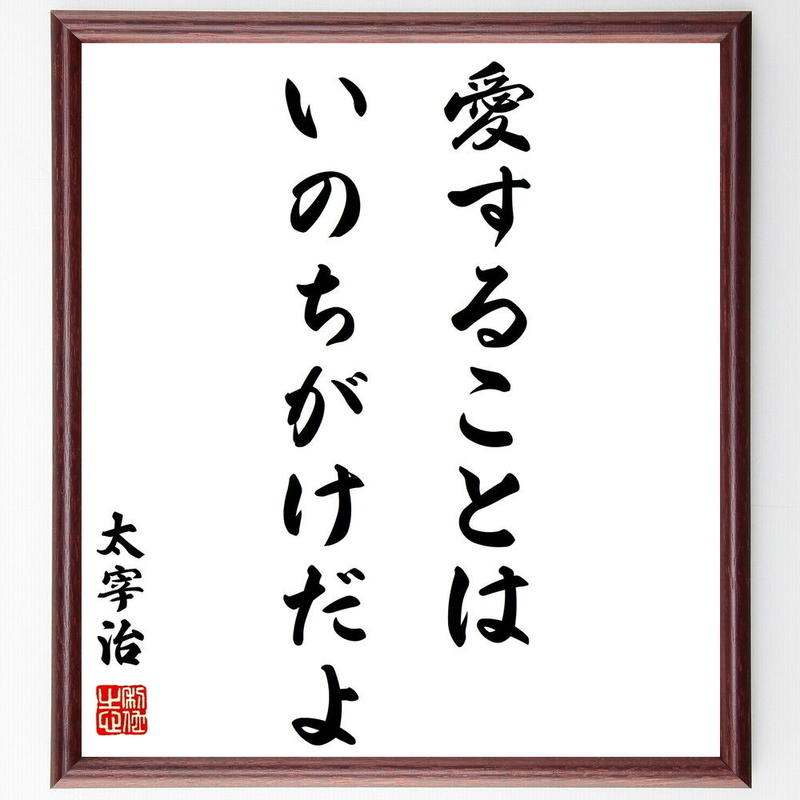 愛することは
いのちがけだよ
太宰治